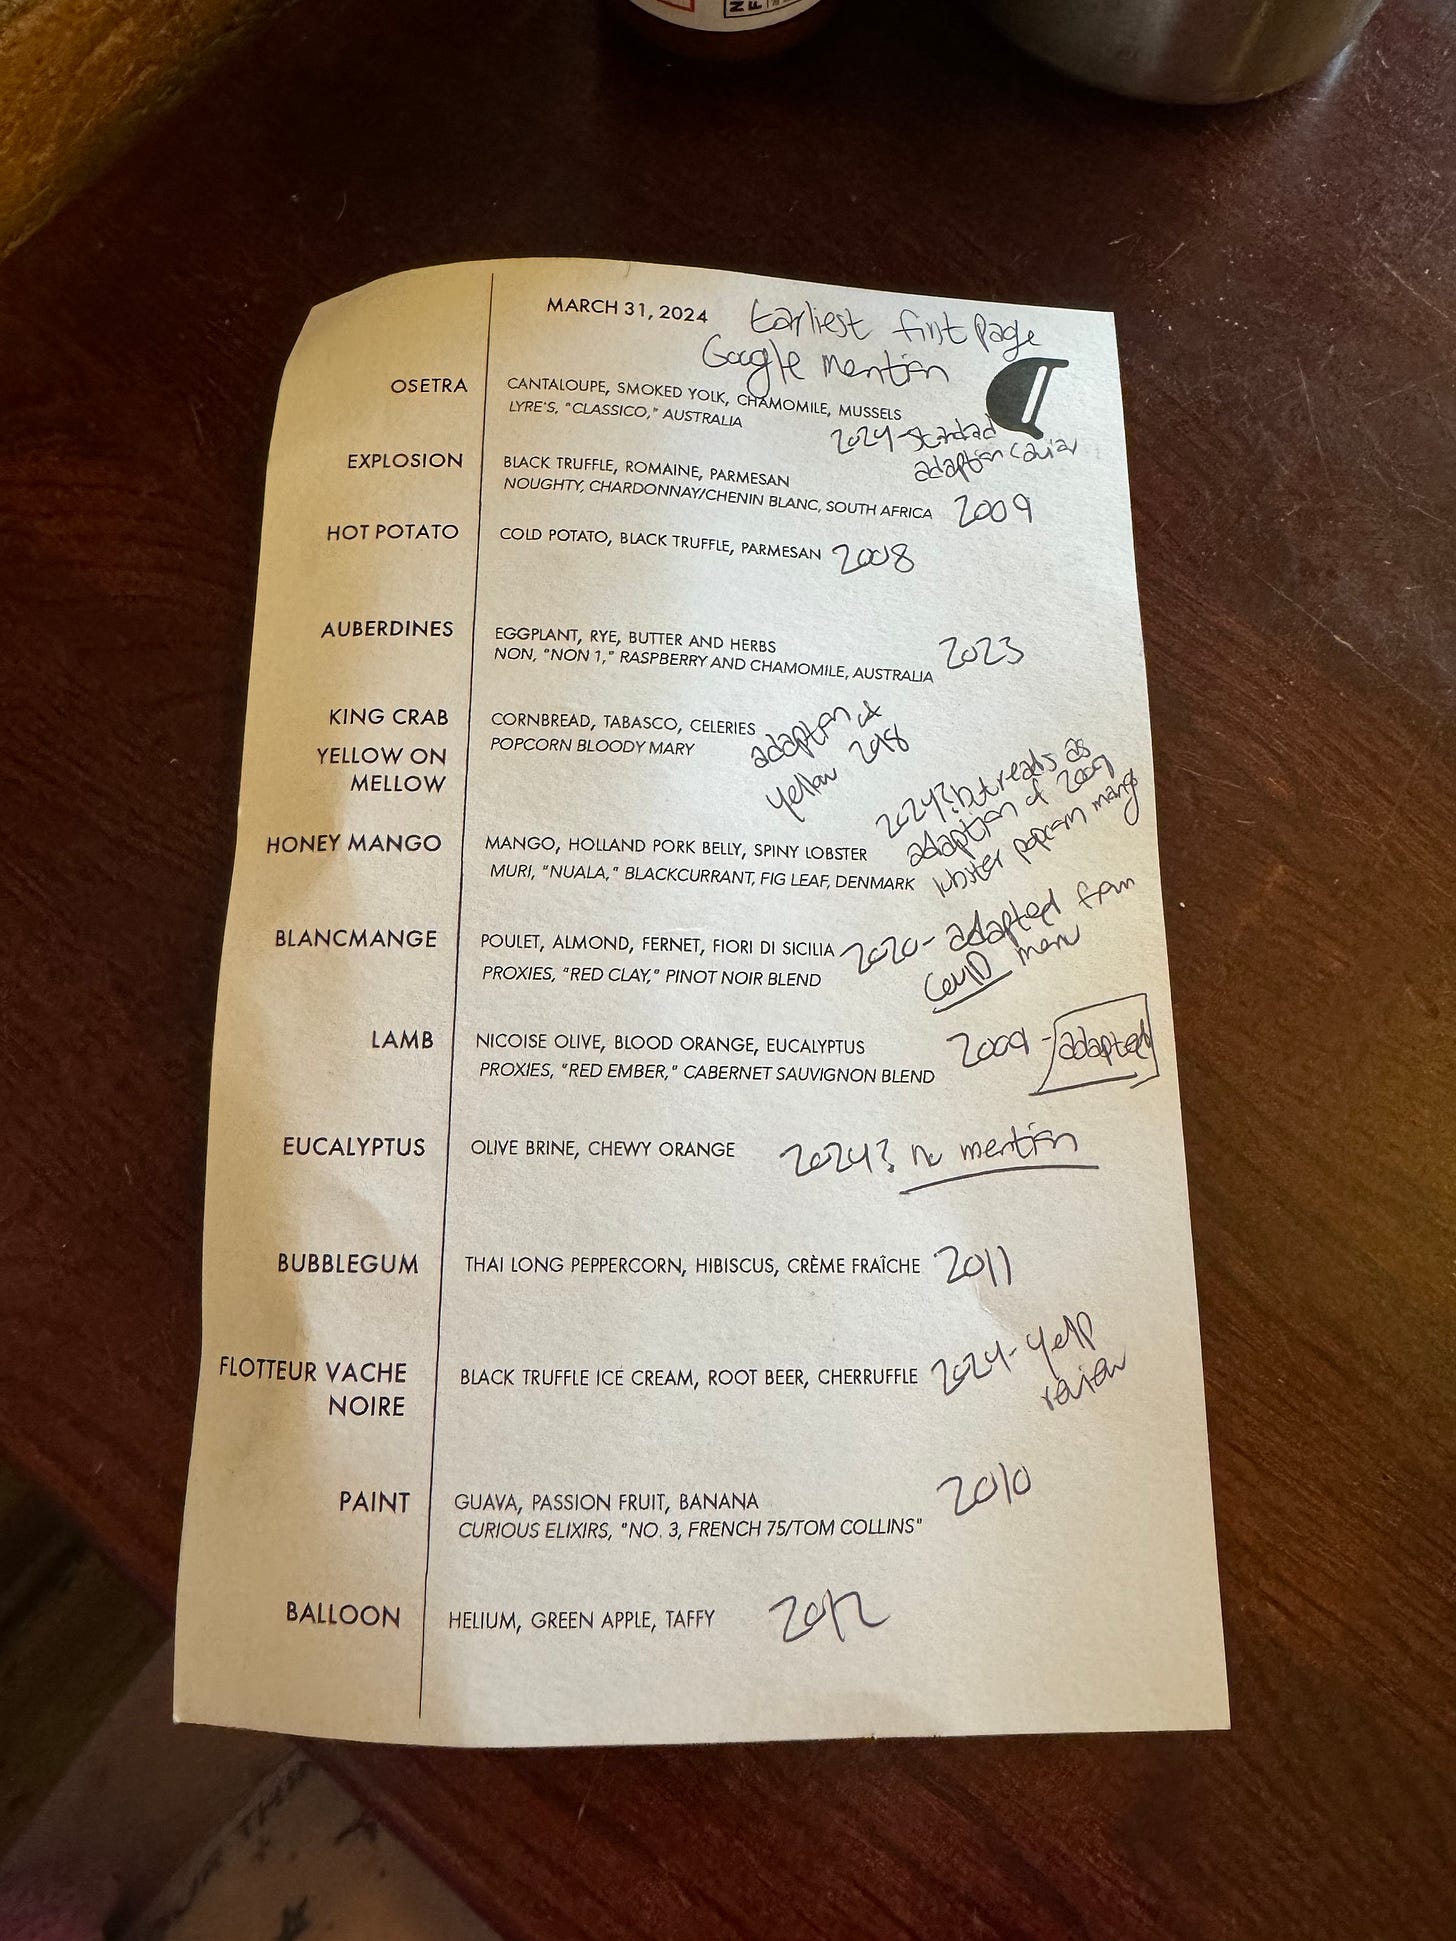 MARCH 31, 2024 Earliest first page
Google mention
OSETRA CANTALOUPE, SMOKED YOLK, CHAMOMILE, MUSSELS
LYRE'S, "CLASSICO," AUSTRALIA
2024 - standard
adaption caviar
EXPLOSION BLACK TRUFFLE, ROMAINE, PARMESAN
NOUGHTY, CHARDONNAY/CHENIN BLANC, SOUTH AFRICA 2009
HOT POTATO COLD POTATO, BLACK TRUFFLE, PARMESAN 2008
AUBERDINES EGGPLANT, RYE, BUTTER AND HERBS 2023
NON, "NON 1," RASPBERRY AND CHAMOMILE, AUSTRALIA
KING CRAB CORNBREAD, TABASCO, CELERIES
YELLOW ON POPCORN BLOODY MARY
MELLOW
adaption of
yellow 2018
HONEY MANGO MANGO, HOLLAND PORK BELLY, SPINY LOBSTER
MURI, "NUALA," BLACKCURRANT, FIG LEAF, DENMARK
2024? but reads as
adaption of 2009
lobster popcorn mango
BLANCMANGE POULET, ALMOND, FERNET, FIORI DI SICILIA
PROXIES, "RED CLAY," PINOT NOIR BLEND
2020 - adapted from
COVID menu
LAMB NICOISE OLIVE, BLOOD ORANGE, EUCALYPTUS 2009 - adapted
PROXIES, "RED EMBER," CABERNET SAUVIGNON BLEND
EUCALYPTUS OLIVE BRINE, CHEWY ORANGE 2024? no mention
BUBBLEGUM THAI LONG PEPPERCORN, HIBISCUS, CRÈME FRAÎCHE 2011
FLOTTEUR VACHE BLACK TRUFFLE ICE CREAM, ROOT BEER, CHERRUFFLE 2024 - yelp
NOIRE review
PAINT GUAVA, PASSION FRUIT, BANANA 2010
CURIOUS ELIXIRS, "NO. 3, FRENCH 75/TOM COLLINS"
BALLOON HELIUM, GREEN APPLE, TAFFY 2012